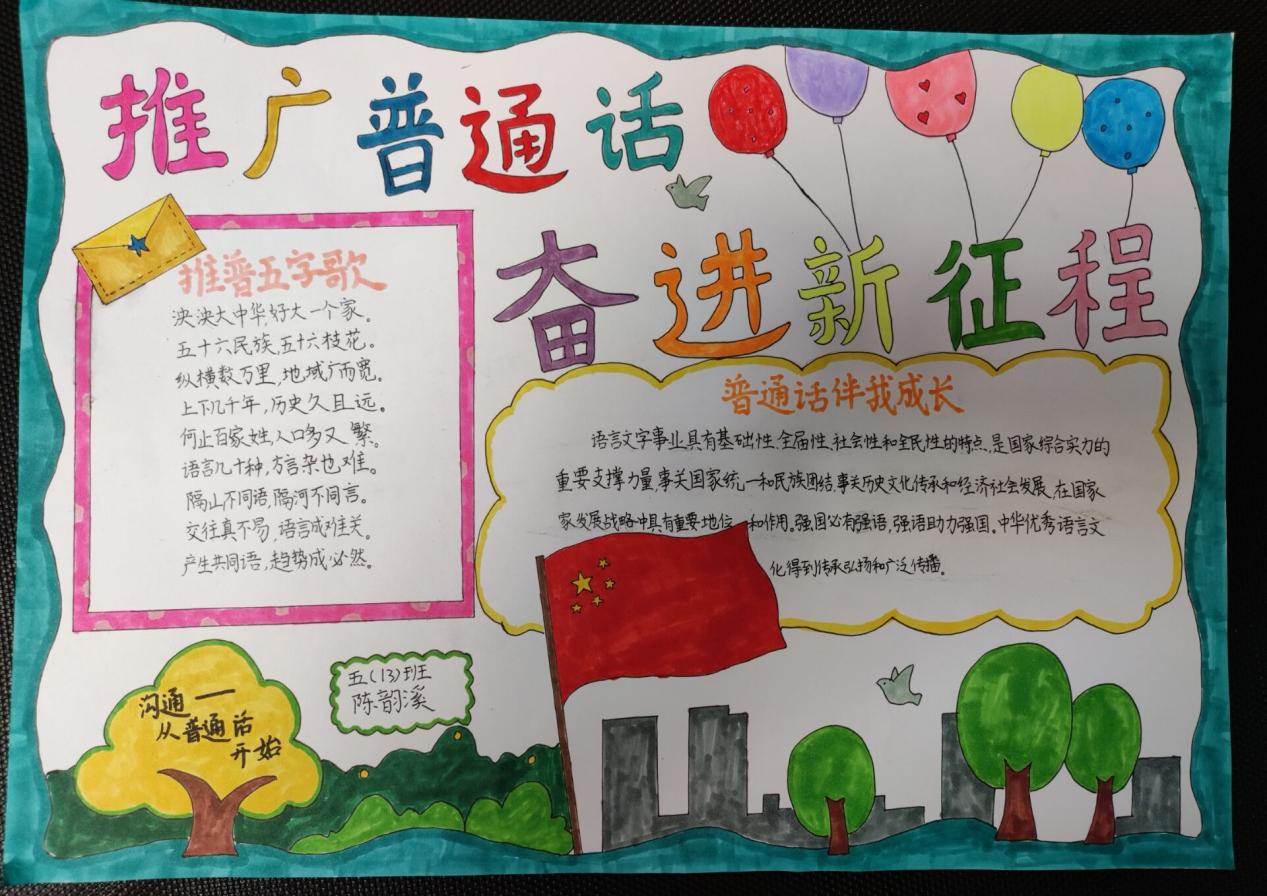 推广普通话
奋进新征程
推普五字歌
泱泱大中华,好大一个家。
五十六民族,五十六枝花。
纵横数万里,地域广而宽。
上下几千年,历史久且远。
何止百家姓,人口多又繁。
语言几十种,方言杂也难。
隔山不同语,隔河不同言。
交往真不易,语言成难关。
产生共同语,趋势成必然。
普通话伴我成长
语言文字事业具有基础性、全局性、社会性和全民性的特点,是国家综合实力的
重要支撑力量,事关国家统一和民族团结,事关历史文化传承和经济社会发展,在国家
家发展战略中具有重要地位 和作用。强国必有强语,强语助力强国。中华优秀语言文
化得到传承弘扬和广泛传播。
沟通一
从普通话
开始
五(13)班
陈韵溪